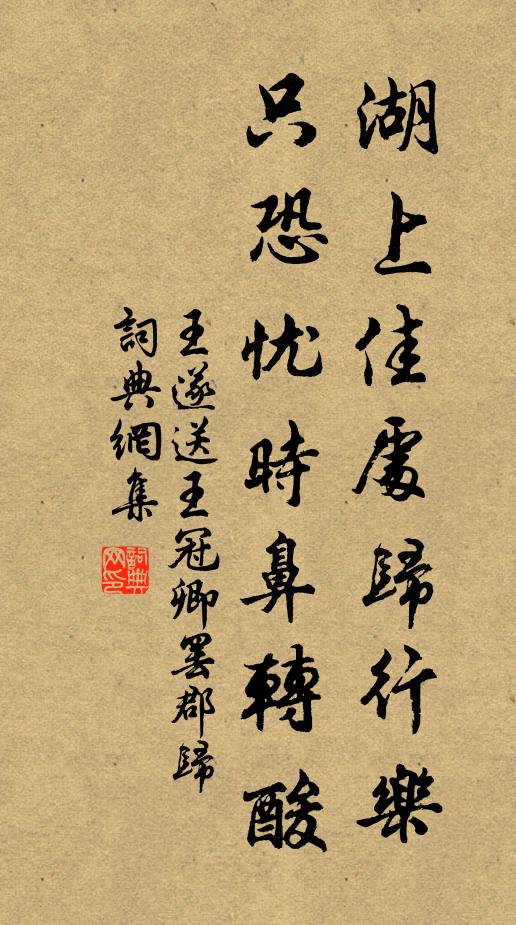 湖上佳處歸行樂
只恐忧時鼻轉酸
王遂送王冠卿罢郡歸
詞典網集
詞典網印